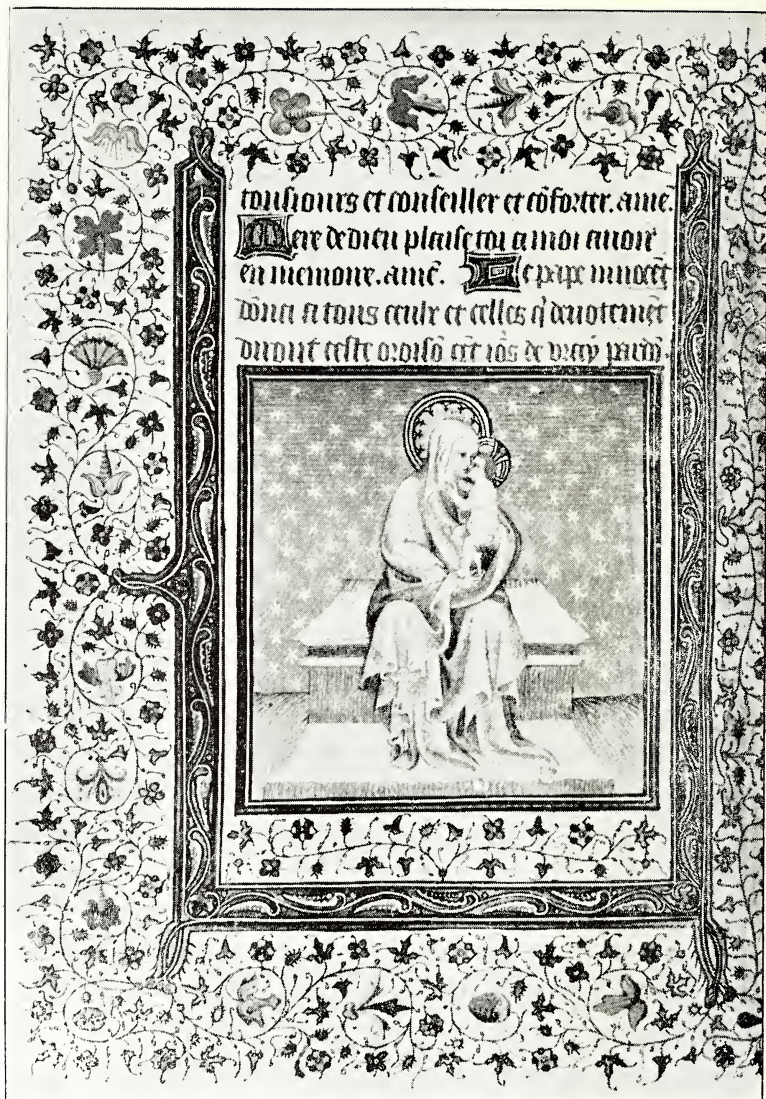 toushours et conseiller et cōforter. amē.
Mere de dieu plaise toi a moi auoir
en memoire. amē. Le pape innocēt
donna a tous ceulx et celles q̄ deuotemēt
diront ceste oroisō cēt iōs de vray pardō.